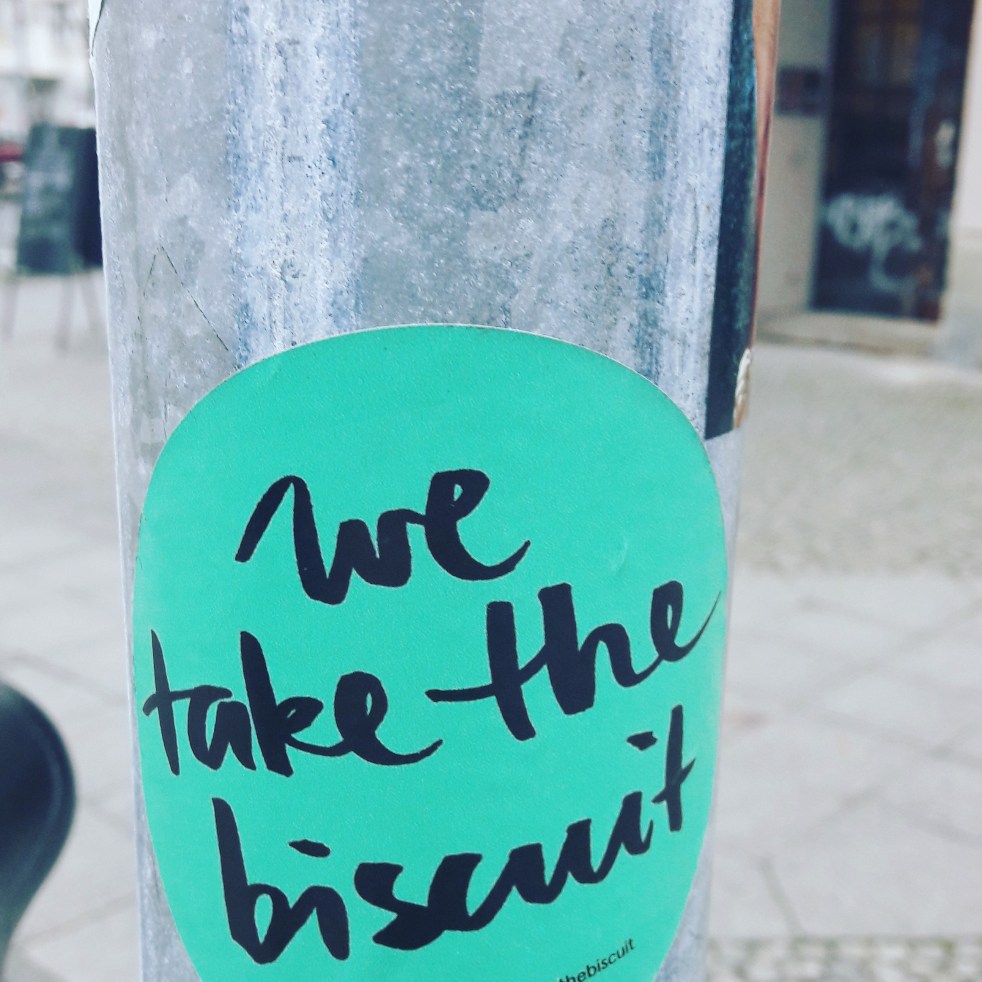 we
take the
biscuit
thebiscuit